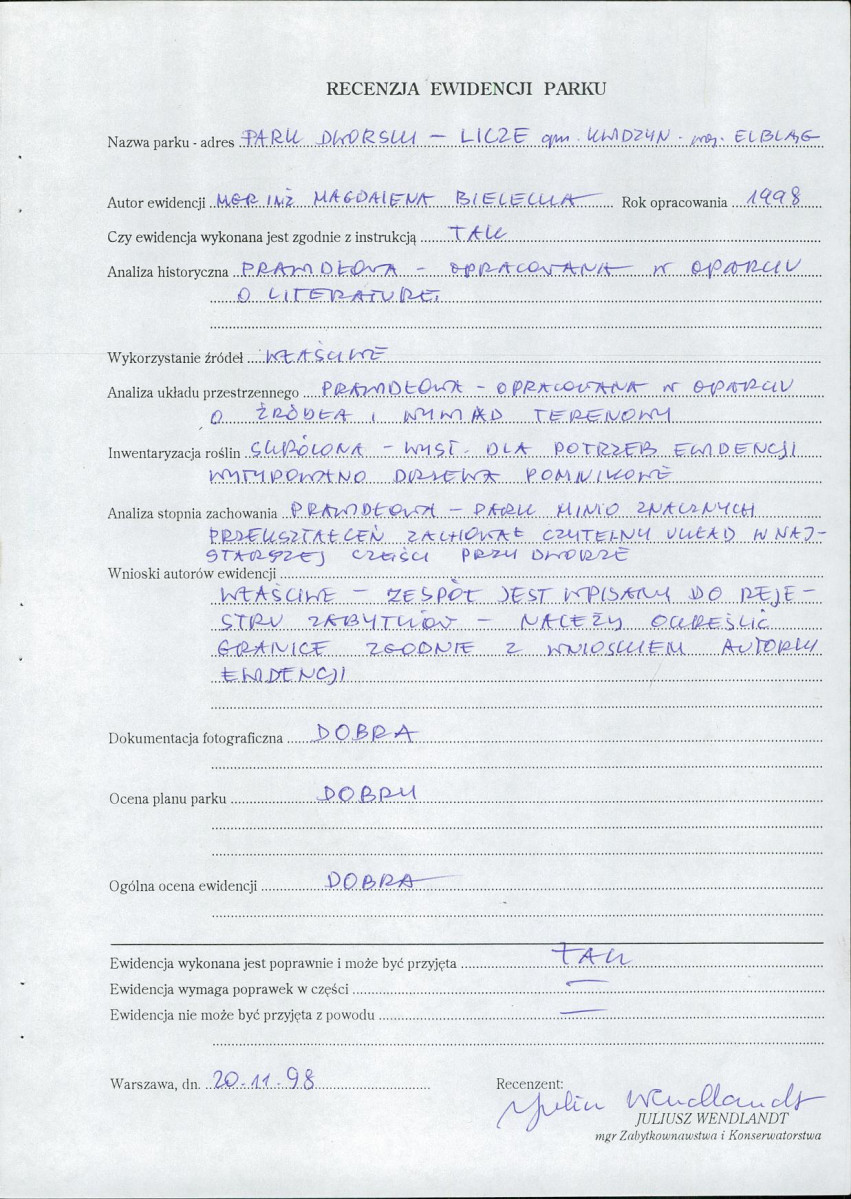 RECENZJA EWIDENCJI PARKU
Nazwa parku - adres PARK DWORSKI – LICZE gm. KWIDZYN - woj. ELBLĄG
Autor ewidencji MGR INŻ MAGDALENA BIELECKA Rok opracowania 1998
Czy ewidencja wykonana jest zgodnie z instrukcją TAK
Analiza historyczna PRAWIDŁOWA – OPRACOWANA W OPARCIU
O LITERATURĘ.
Wykorzystanie źródeł WŁAŚCIWE
Analiza układu przestrzennego PRAWIDŁOWA – OPRACOWANA W OPARCIU
O ŹRÓDŁA I WYWIAD TERENOWY
Inwentaryzacja roślin SKRÓCONA – WYST. DLA POTRZEB EWIDENCJI
WYTYPOWANO DRZEWA POMNIKOWE
Analiza stopnia zachowania PRAWIDŁOWA – PARK MIMO ZNACZNYCH
PRZEKSZTAŁCEŃ ZACHOWAŁ CZYTELNY UKŁAD W NAJ-
STARSZEJ CZĘŚCI PRZY DWORZE
Wnioski autorów ewidencji
WŁAŚCIWE – ZESPÓŁ JEST WPISANY DO REJE-
STRU ZABYTKÓW – NALEŻY OKREŚLIĆ
GRANICE ZGODNIE Z WNIOSKIEM AUTORKI
EWIDENCJI
Dokumentacja fotograficzna DOBRA
Ocena planu parku DOBRY
Ogólna ocena ewidencji DOBRA
Ewidencja wykonana jest poprawnie i może być przyjęta TAK
Ewidencja wymaga poprawek w części —
Ewidencja nie może być przyjęta z powodu —
Warszawa, dn. 20.11.98 Recenzent:
Juliusz Wendlandt
JULIUSZ WENDLANDT
mgr Zabytkownawstwa i Konserwatorstwa